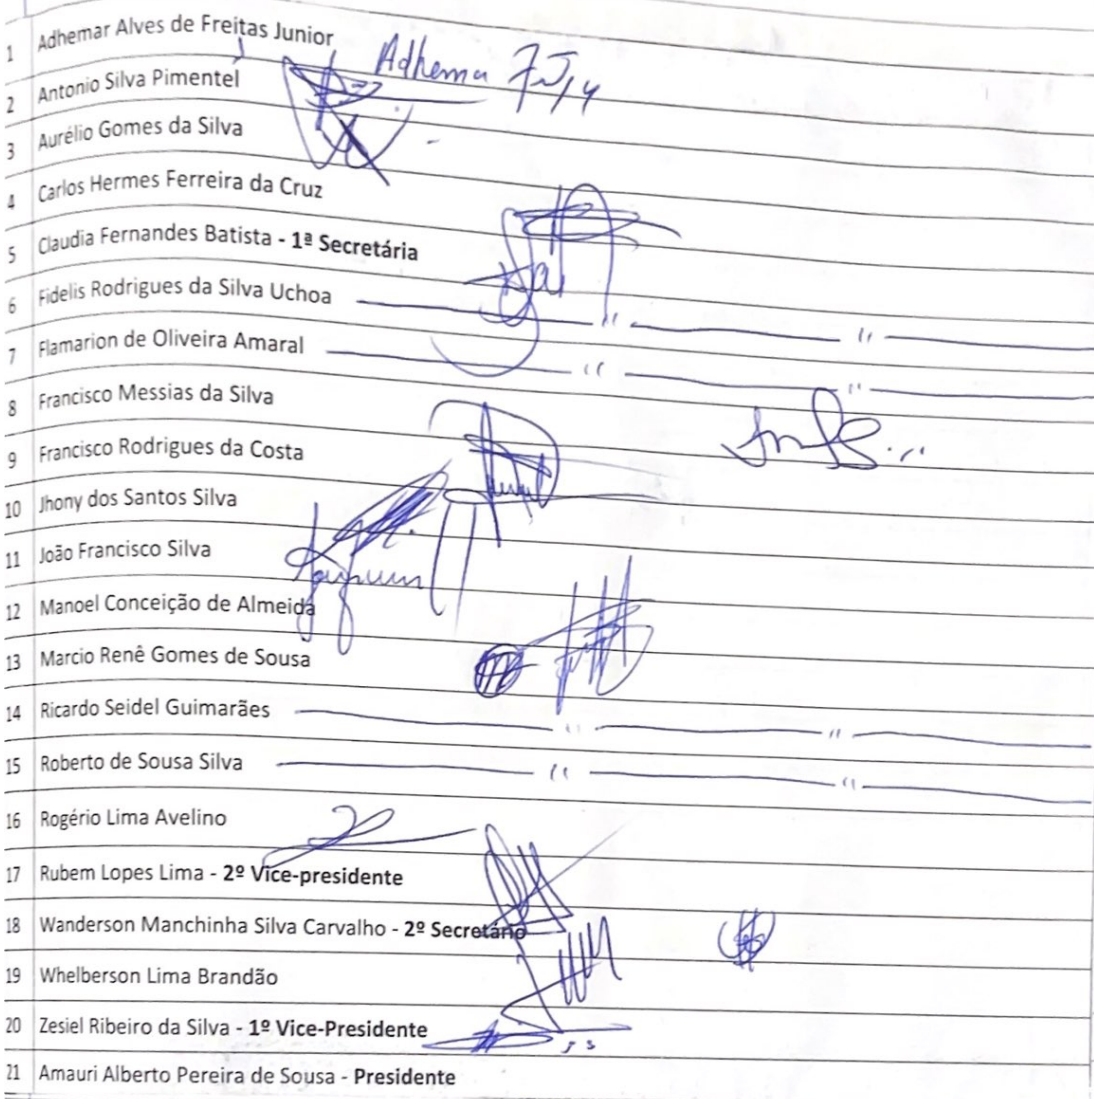 1 Adhemar Alves de Freitas Junior
Adhema
2 Antonio Silva Pimentel
3 Aurélio Gomes da Silva
4 Carlos Hermes Ferreira da Cruz
5 Claudia Fernandes Batista - 1ª Secretária
6 Fidelis Rodrigues da Silva Uchoa
7 Flamarion de Oliveira Amaral
8 Francisco Messias da Silva
9 Francisco Rodrigues da Costa
10 Jhony dos Santos Silva
11 João Francisco Silva
12 Manoel Conceição de Almeida
13 Marcio Renê Gomes de Sousa
14 Ricardo Seidel Guimarães
15 Roberto de Sousa Silva
16 Rogério Lima Avelino
17 Rubem Lopes Lima - 2º Vice-presidente
18 Wanderson Manchinha Silva Carvalho - 2º Secretário
19 Whelberson Lima Brandão
20 Zesiel Ribeiro da Silva - 1º Vice-Presidente
21 Amauri Alberto Pereira de Sousa - Presidente